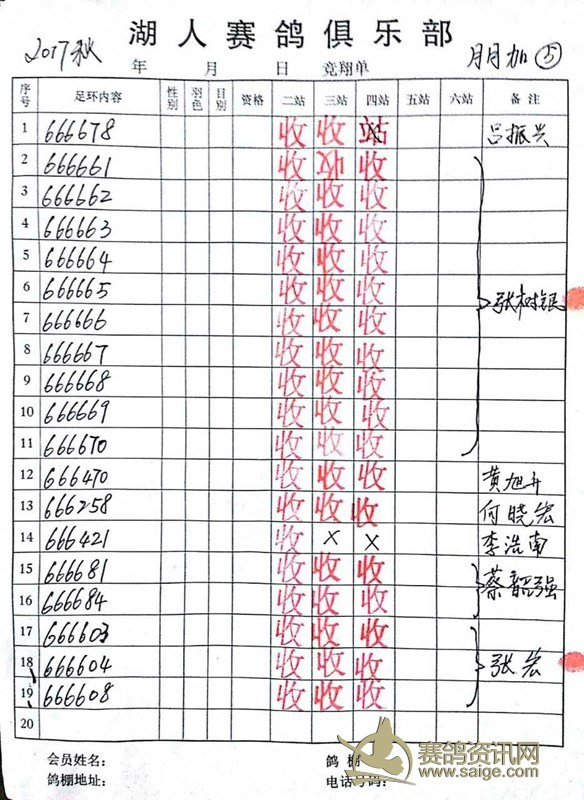 湖人赛鸽俱乐部
2017秋 年 月 日 竞翔单 朋加⑤
序号 足环内容 性别 羽色 目别 资格 二站 三站 四站 五站 六站 备注
1 666678 收 收 吕振兴
2 666661 收 收
3 666662 收 收 收
4 666663 收 收 收
5 666664 收 收 收
6 666665 收 收 收 张树银
7 666666 收 收 收
8 666667 收 收 收
9 666668 收 收 收
10 666669 收 收 收
11 666670 收 收 收
12 666470 收 收 收 黄旭升
13 666258 收 收 收 何晓宏
14 666421 收 × × 李浩南
15 666681 收 收 收 蔡韶强
16 666684 收 收 收
17 666603 收 收 收
18 666604 收 收 收 张宏
19 666608 收 收 收
20
会员姓名： 鸽棚
鸽棚地址： 电话号码：
赛鸽资讯网
www.saige.com